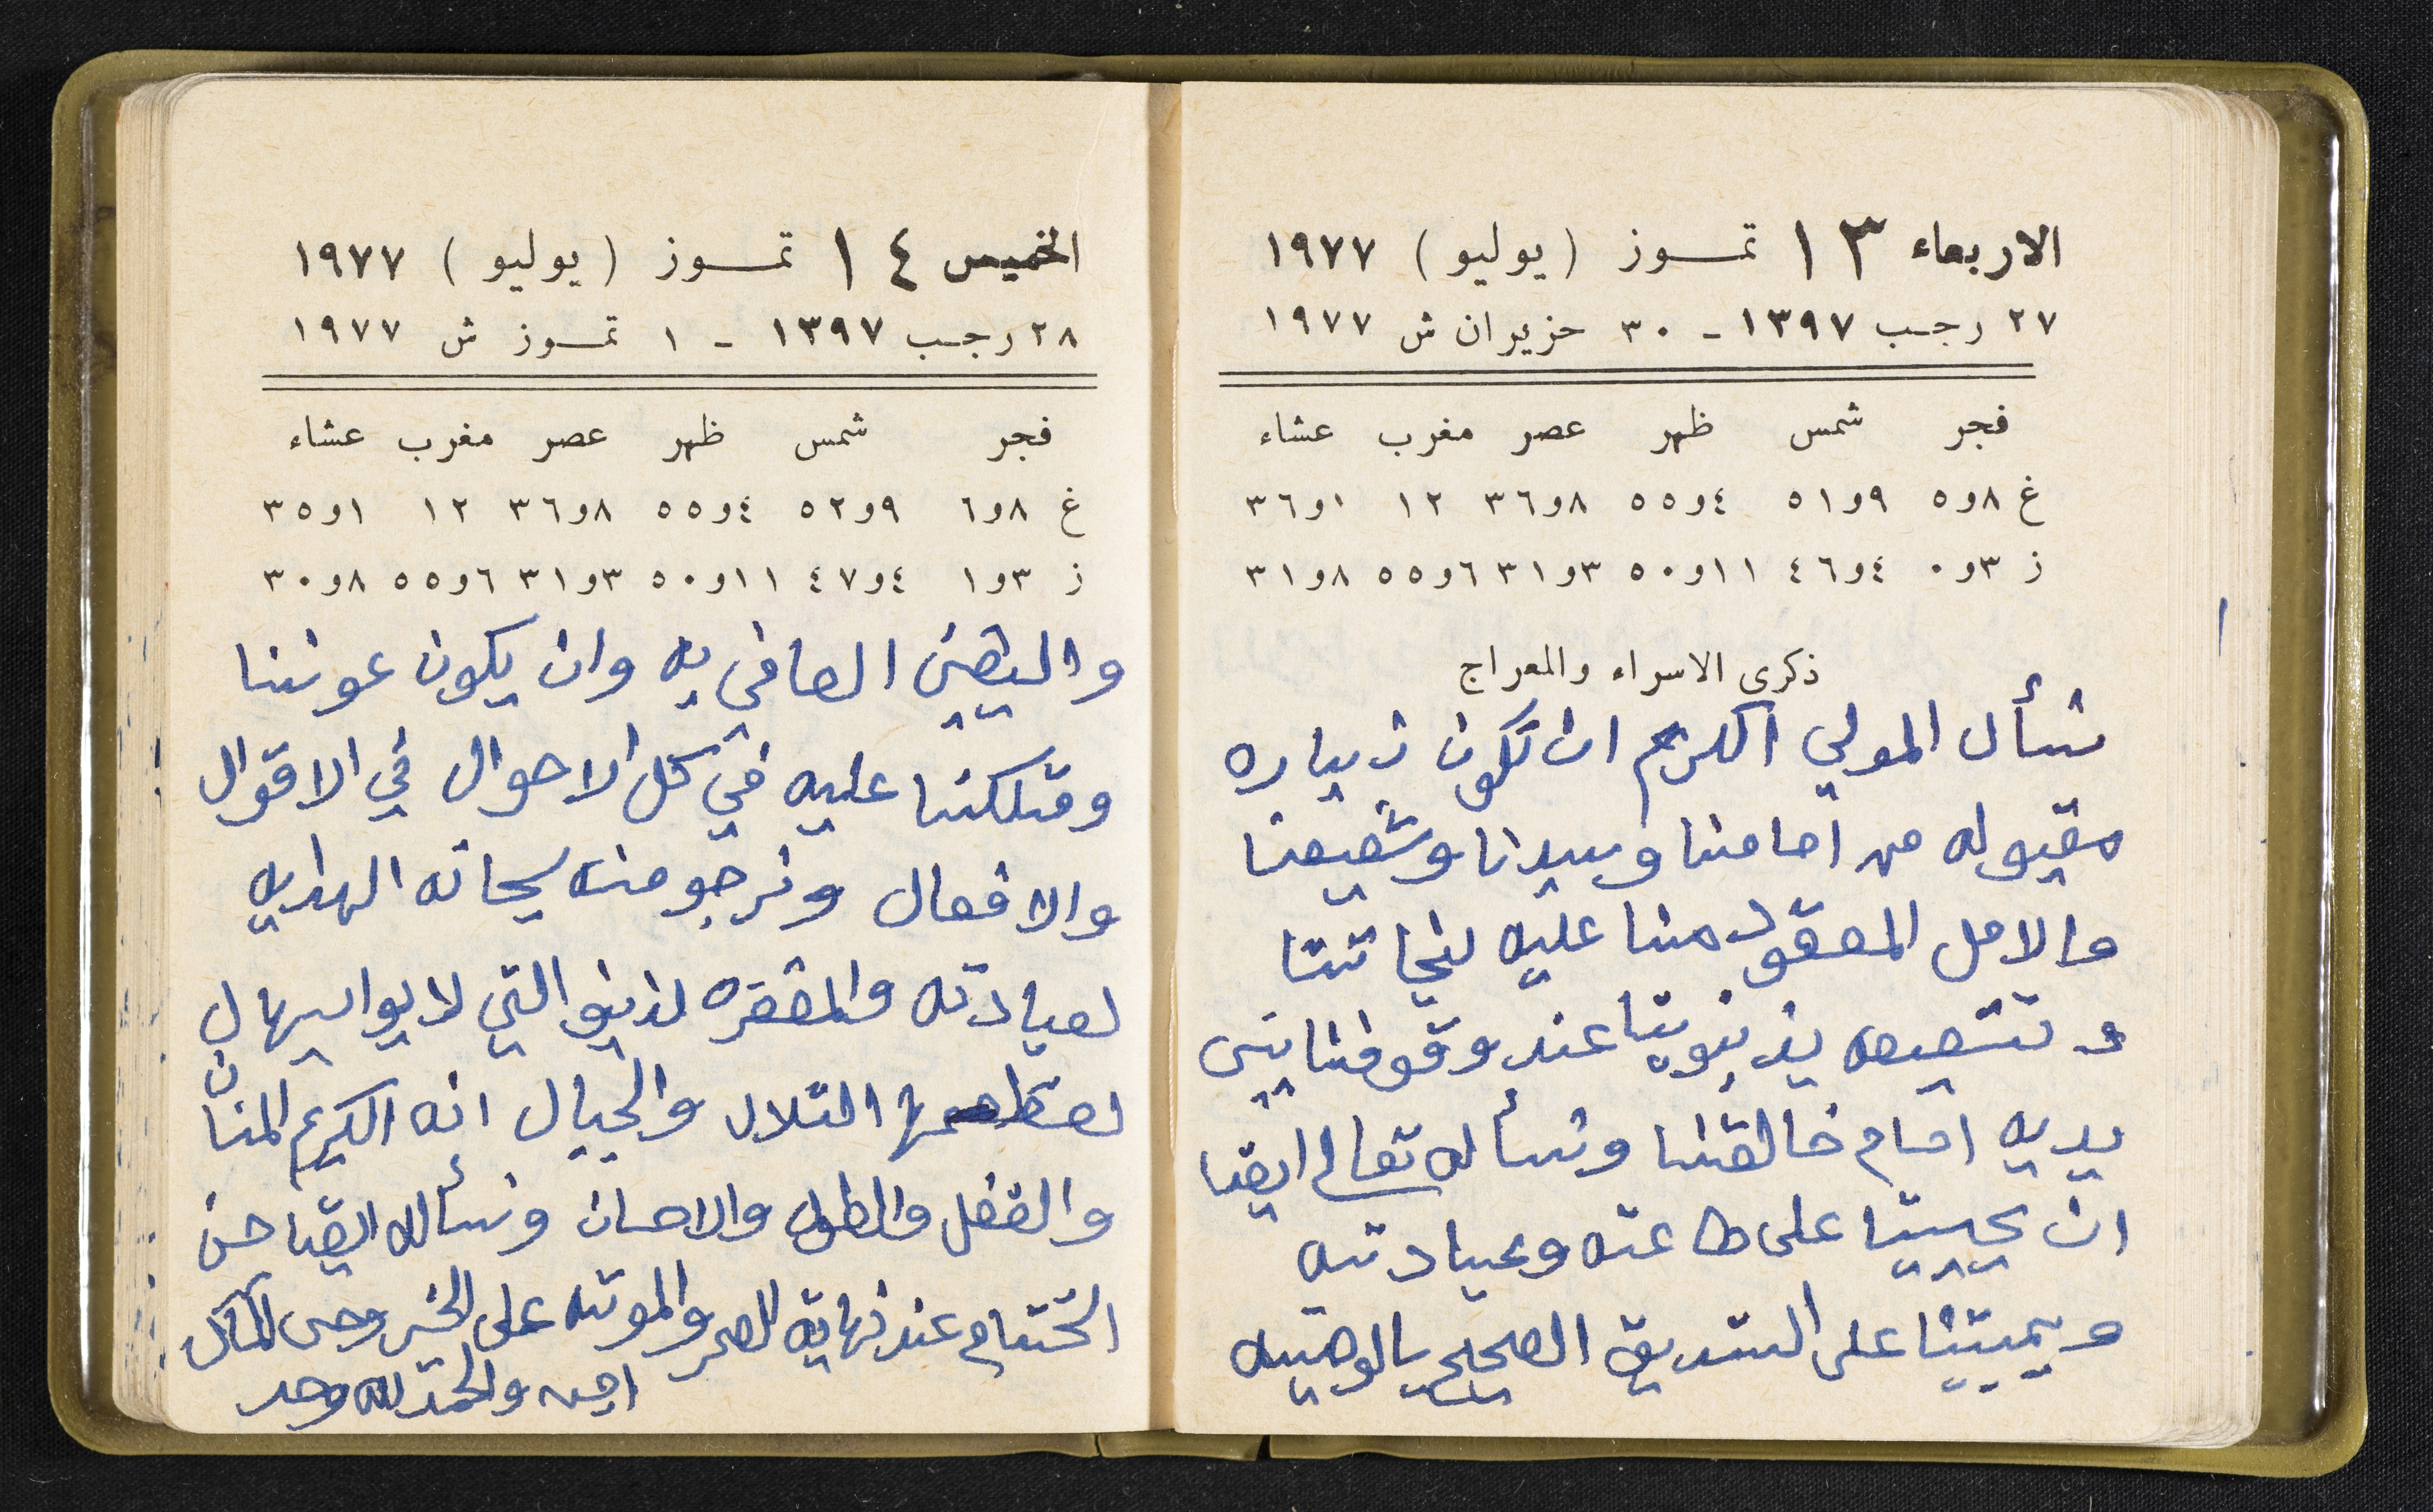 الاربعاء ١٣ تمـــوز (يوليو) ١٩٧٧
٢٧ رجب ١٣٩٧ - ٣٠ حزيران ش ١٩٧٧
فجر شمس ظهر عصر مغرب عشاء
غ ٨و٥ ٩و٥١ ٤و٥٥ ٨و٣٦ ١٢ ١و٣٦
ز ٣و٠ ٤و٤٦ ١١و٥٠ ٣و٣١ ٦و٥٥ ٨و٣١
ذكرى الاسراء والمعراج
نسأل المولي الكريم ان تكون زياره
مقبوله من امامنا وسيدنا وشفيعنا
والامل المعقود منا عليه لنجاتنا
يذنوبنا عند وقوفنا بين
يديه امام خالقنا ونسأله تعالى ايضا
ان يحيينا على طاعته وعبادته
ويميتنا على الصحيح بالوهيته
الخميس ١٤ تمـــوز (يوليو) ١٩٧٧
٢٨ رجب ١٣٩٧ - ١ تمـــوز ش ١٩٧٧
فجر شمس ظهر عصر مغرب عشاء
غ ٨و٦ ٩و٥٢ ٤و٥٥ ٨و٣٦ ١٢ ١و٣٥
ز ٣و١ ٤و٤٧ ١١و٥٠ ٣و٣١ ٦و٥٥ ٨و٣٠
واليقين الصافي به وان يكون عوننا
عليه في كل الاحوال في الاقوال
والافعال ونرجو منه سبحانه الهدايه
لعبادته والمغفره التي لا
التلال والجبال انه الكريم المنان
والفضل والطول والاحسان ونسأله ايضا حسن
الختام عند نهاية العمر والموته على الخير وحسن المآل
امين والحمد لله وحد